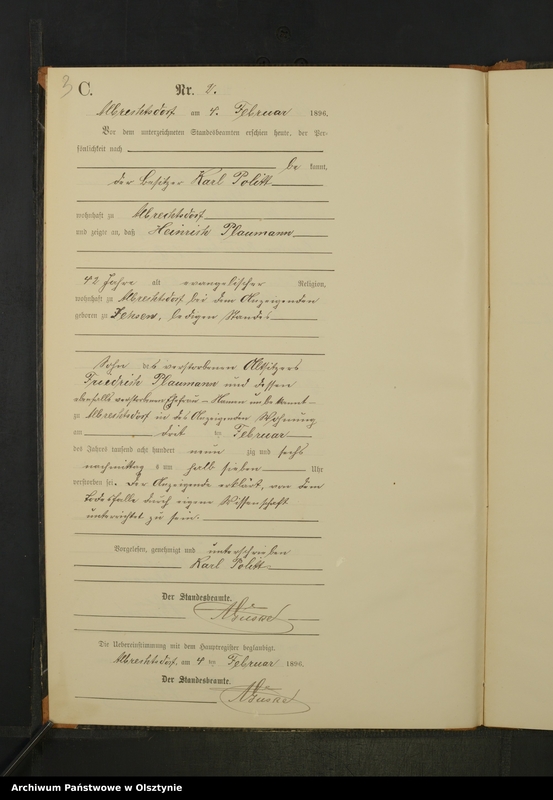 3 C. Nr. 2.
Albrechtsdorf am 4. Februar 1896.
Vor dem unterzeichneten Standesbeamten erschien heute, der Per-
sönlichkeit nach
be kannt,
der Besitzer Karl Politt
wohnhaft zu Albrechtsdorf
und zeigte an, daß Heinrich Plaumann
42 Jahre alt evangelischer Religion,
wohnhaft zu Albrechtsdorf bei dem Anzeigenden
geboren zu ledigen Standes
Sohn des verstorbenen Altsitzers
Friedrich Plaumann und dessen
ebenfalls verstorbenen Ehefrau – Namen unbekannt –
zu Albrechtsdorf in des Anzeigenden Wohnung
am drit ten Februar
des Jahres tausend acht hundert neun zig und sechs
nachmittag s um halb sieben Uhr
verstorben sei. Der Anzeigende erklärt, von dem
Todesfalle durch eigene Wissenschaft
unterrichtet zu sein.
Vorgelesen, genehmigt und unterschrieben
Karl Politt
Der Standesbeamte.
Die Uebereinstimmung mit dem Hauptregister beglaubigt.
Albrechtsdorf, am 4 ten Februar 1896.
Der Standesbeamte.
Archiwum Państwowe w Olsztynie